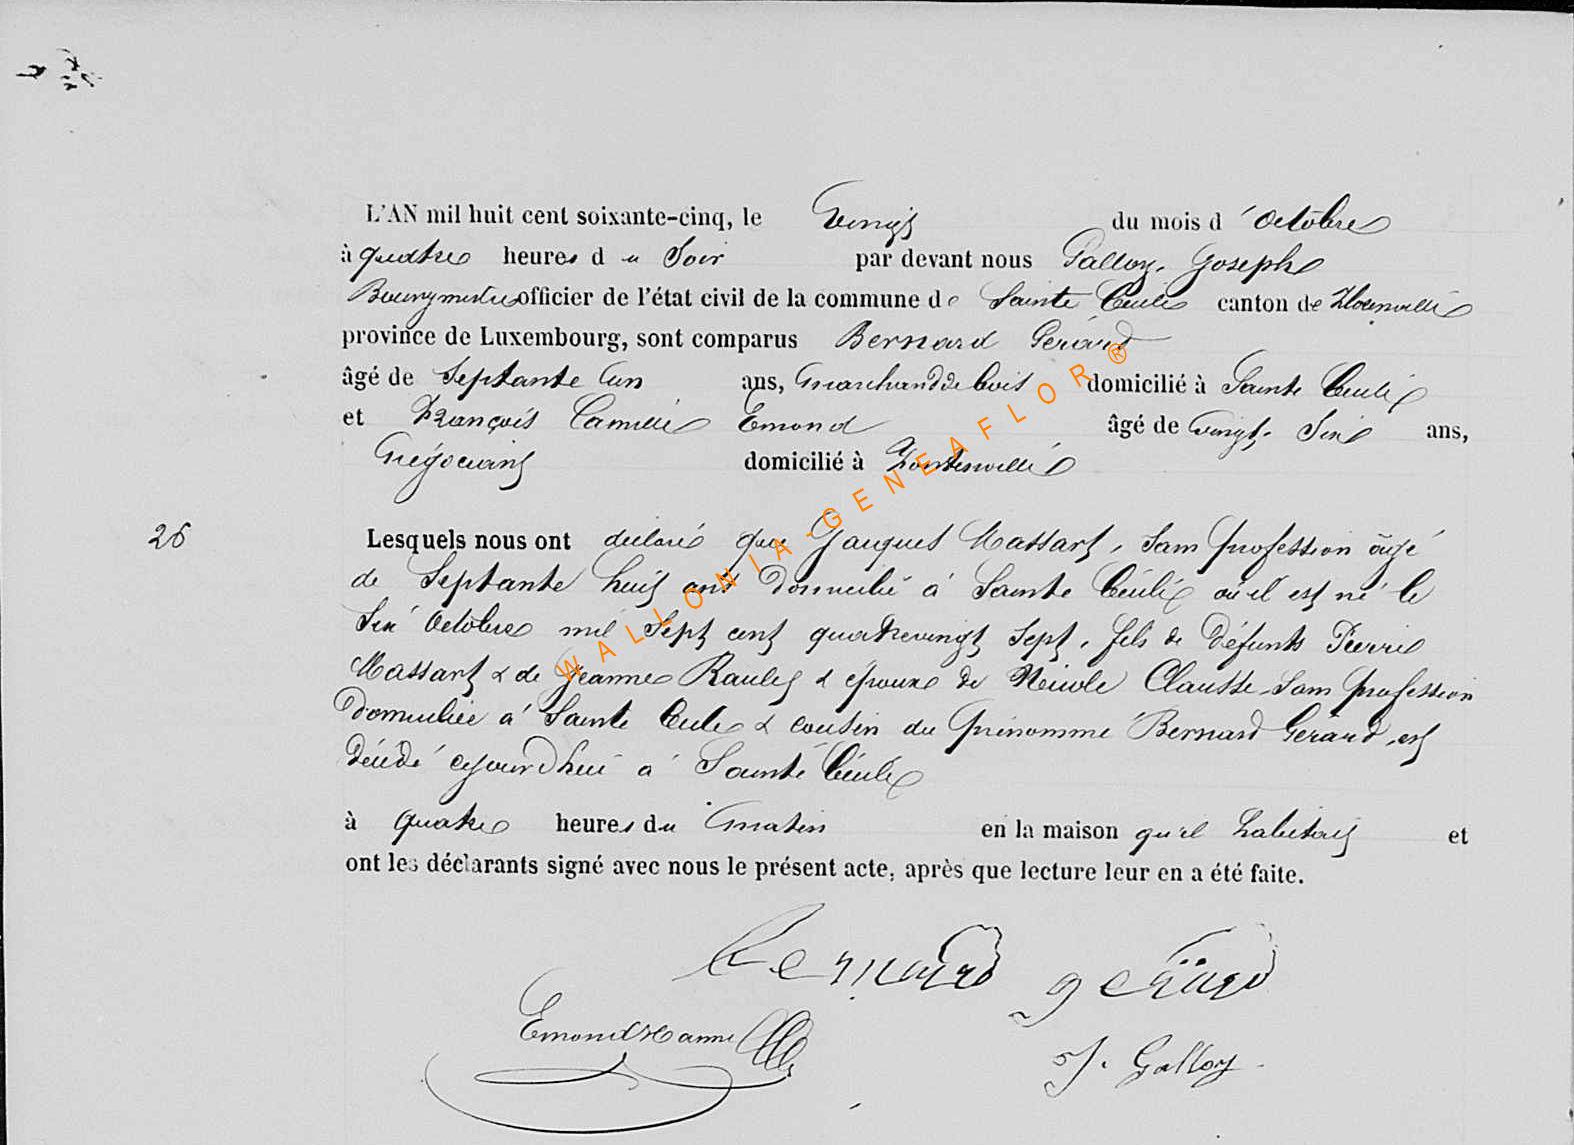 L'AN mil huit cent soixante-cinq, le Vingt du mois d'Octobre
à quatre heures du Soir par devant nous Galloy, Joseph
Bourgmestre officier de l'état civil de la commune de Sainte Cécile canton de Florenville
province de Luxembourg, sont comparus Bernard Gérard
âgé de Septante un ans, marchand de bois domicilié à Sainte Cécile
et François Camille Emond âgé de vingt-Six ans,
Négociant domicilié à Fontenoille
26
Lesquels nous ont déclaré que Jacques Massart, Sans profession âgé
de Septante huit ans domicilié à Sainte Cécile où il est né le
Six Octobre mil Sept cent quatrevingt Sept, fils de Défunts Pierre
Massart & de Jeanne Raulet & époux de Nicole Clausse Sans profession
Domiciliée à Sainte Cécile & cousin du prénommé Bernard Gérard, est
Décédé cejourd'hui à Sainte Cécile
à quatre heures du matin en la maison qu'il habitait et
ont les déclarants signé avec nous le présent acte, après que lecture leur en a été faite.
Bernard gerard
Emond
J. Galloy
WALLONIA-GENEAFLOR®